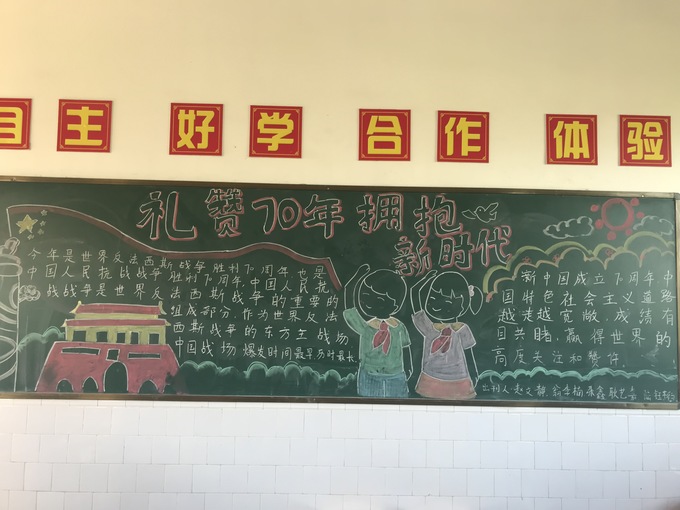 自主 好学 合作 体验
礼赞70年 拥抱
新时代
今年是世界反法西斯战争胜利70周年也是
中国人民抗战战争胜利70周年,中国人民抗
战战争是世界反法西斯战争的重要的
组成部分,作为世界反法
西斯战争的东方主战场
中国战场爆发时间最早历时最长
新中国成立70周年中
国特色社会主义道路
越走越宽敞,成绩有
目共睹,赢得世界的
高度关注和赞许.
出刊人:赵文静